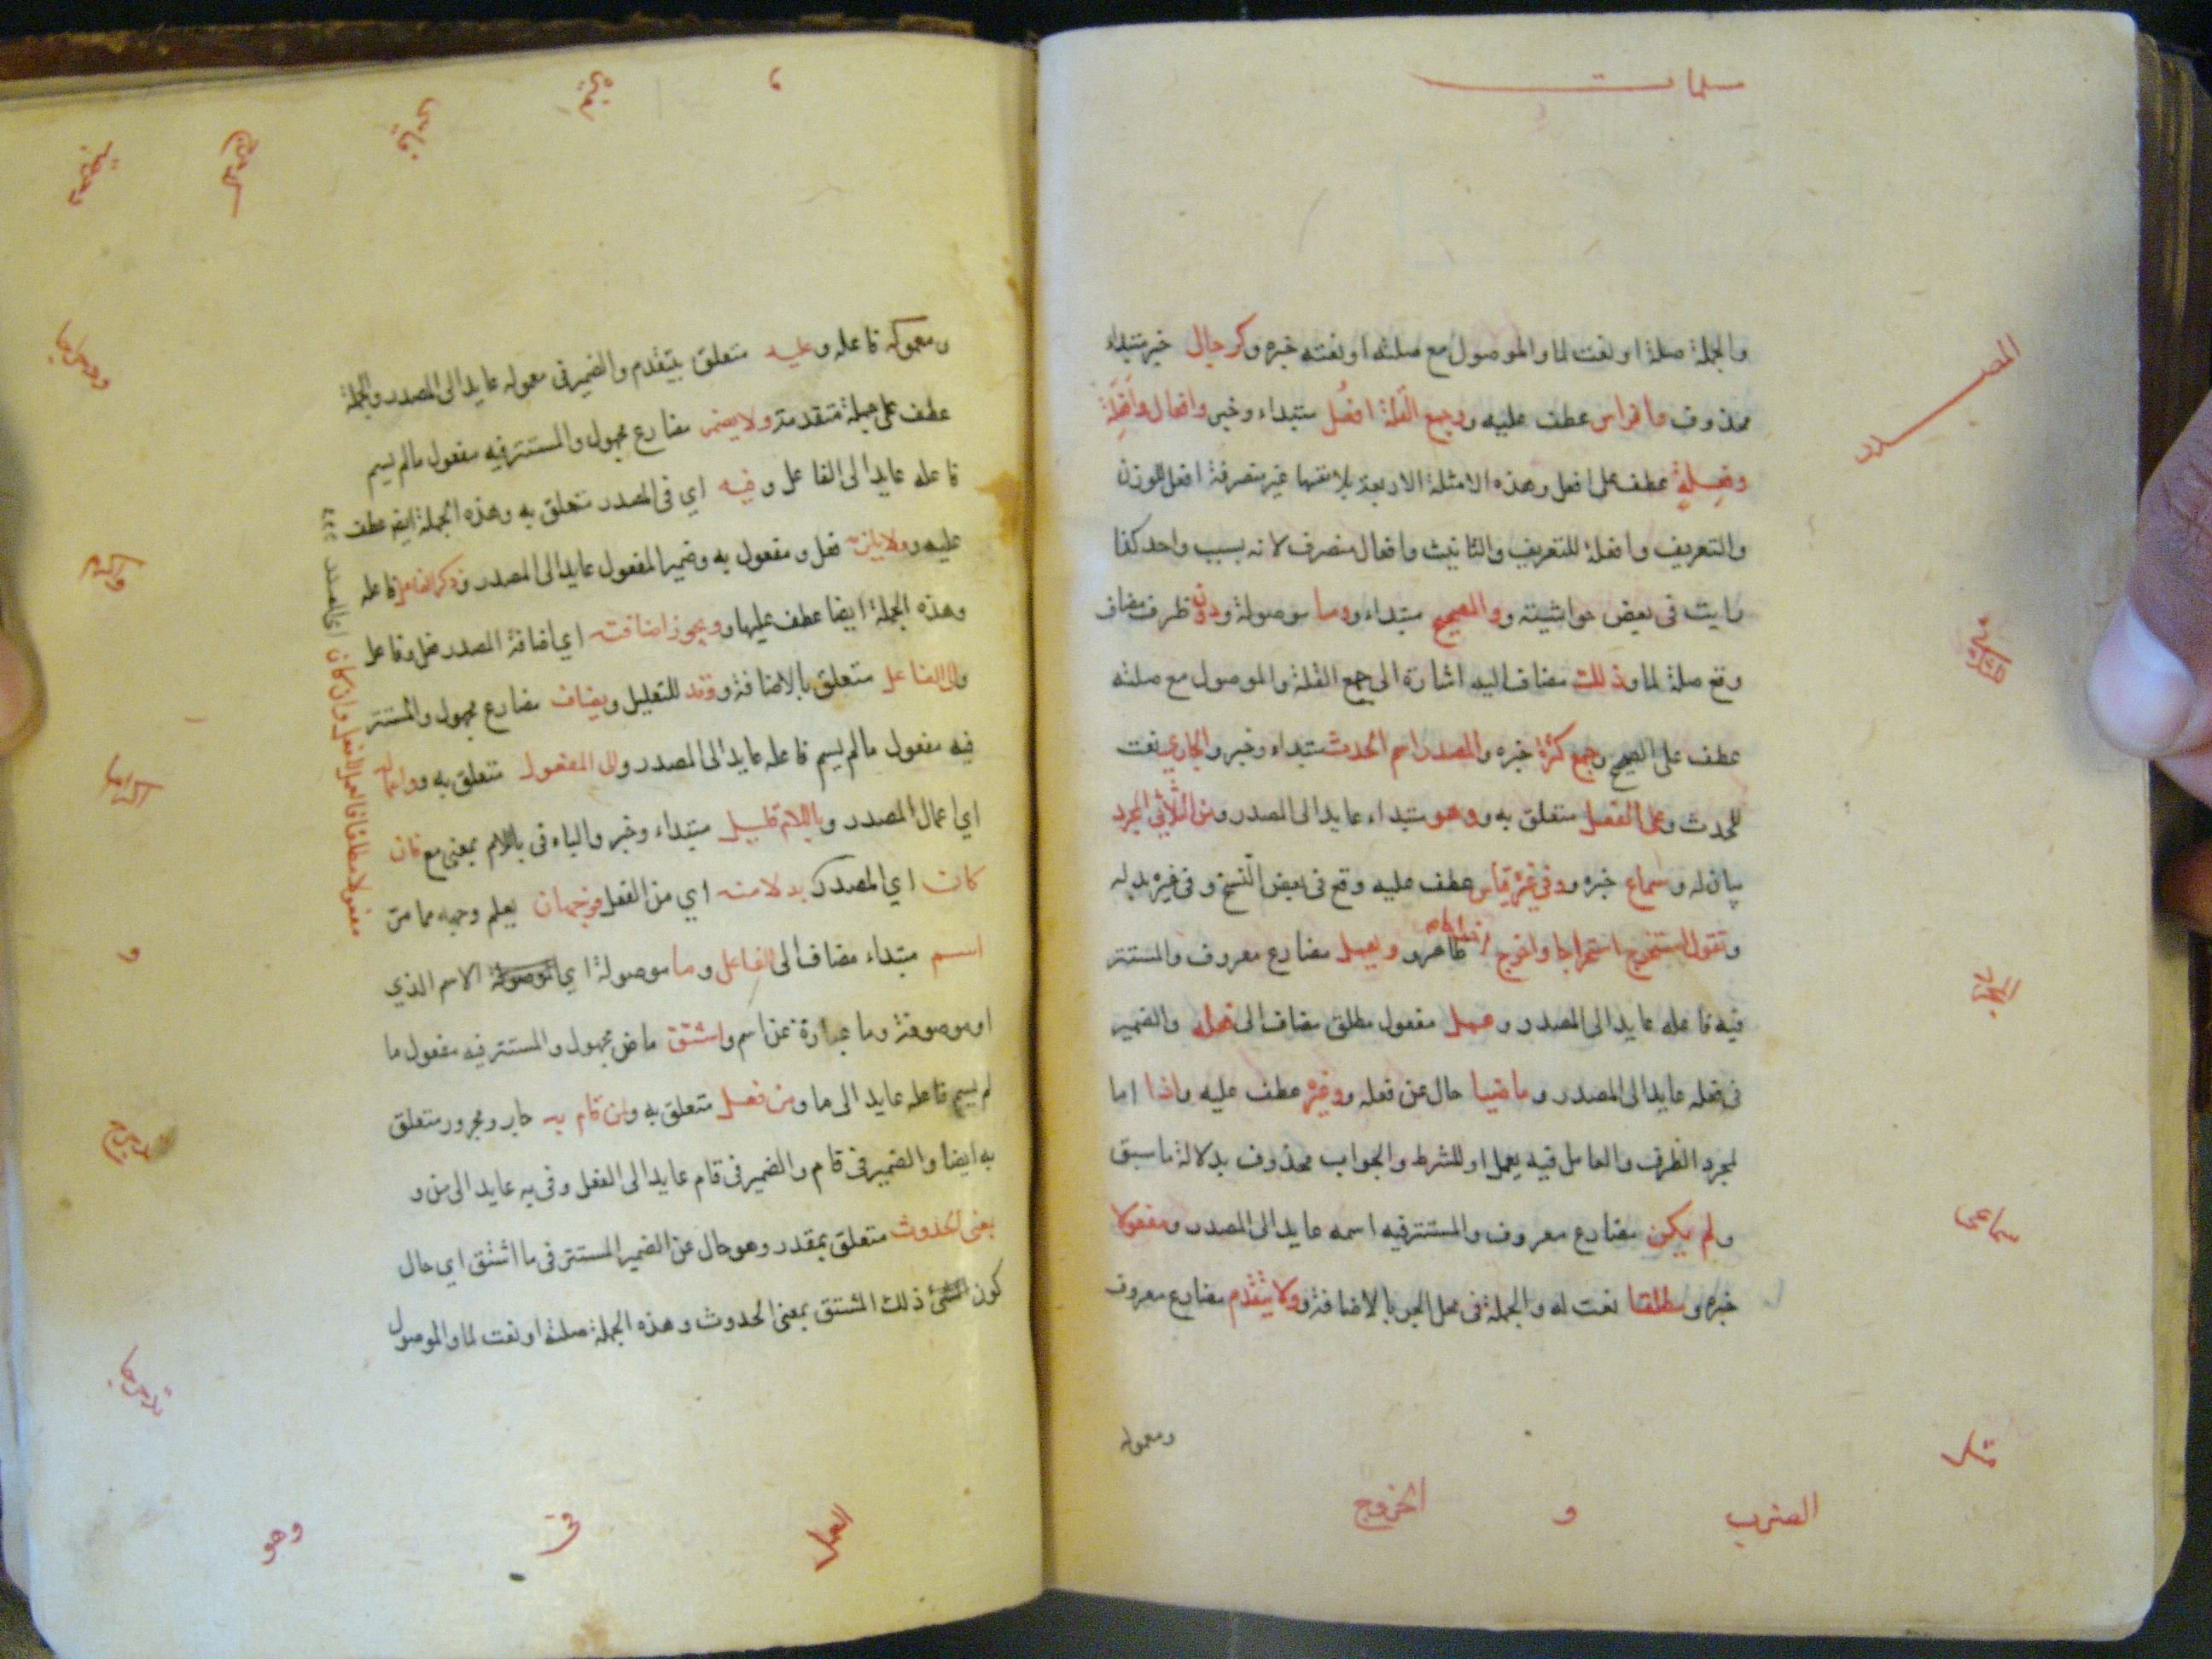 مسلمات
والجملة صلة او نعت لما والموصول مع صلته او نعته خبره وكرجال خبر مبتداء
محذوف وافراس عطف عليه ووجمع القلة افعل مبتداء وخبر وافعال وافعلة
وفعلة عطف على افعل وهذه الامثلة الاربعة بلا غير متصرفة افعل للوزن
والتعريف وافعلة للتعريف والتانيث وافعال منصرف لانه بسبب واحد كذا
رايت فى بعض حواشيه ووالصحيح مبتداء ووما موصولة ودون ظرف مضاف
وقع صلة لما وذلك مضاف اليه اشارة الى جمع القلة والموصول مع صلته
عطف على الصحيح وجمع كثرة خبره والمصدر اسم الحدث مبتداء وخبر والجاري نعت
للحدث وعلى الفعل متعلق به ووهو مبتداء عايد الى المصدر ومن الثلاثي المجرد
بيان له وسماع خبره ووفى غيره قياس عطف عليه وقع فى بعض النسخ وفى غيره بدله
وتقول استخرج استخراجا واخرج ظاهر وويعمل مضارع معروف والمستتر
فيه فاعله عايد الى المصدر وعمل مفعول مطلق مضاف الى فعله والضمير
فى فعله عايد الى المصدر وماضيا حال عن فعله ووغيره عطف عليه واذا اما
لمجرد الظرف والعامل فيه يعمل او للشرط والجواب محذوف بدلالة ما سبق
ولم يكن مضارع معروف والمستتر فيه اسمه عايد الى المصدر ومفعولا
خبره ومطلقا نعت له والجملة فى محل الجر بالاضافة وولا يتقدم مضارع معروف
ومعموله
المصدر
سماعى
مثل
الضرب
و
الخروج
ومعموله فاعله وعليه متعلق بيتقدم والضمير فى معموله عايد الى المصدر والجملة
عطف على جملة متقدمة وولا يضمر مضارع مجهول والمستتر فيه مفعول ما لم يسم
فاعله عايد الى الفاعل وفيه اي فى المصدر متعلق به وهذه الجملة ايضا عطف
عليه وولا يلزم فعل ومفعول به وضمير المفعول عايد الى المصدر وذكر الفاعل فاعله
وهذه الجملة ايضا عطف عليها وويجوز اضافته اي اضافة المصدر فعل وفاعل
والى الفاعل متعلق بالاضافة ووقد للتقليل ويضاف مضارع مجهول والمستتر
فيه مفعول ما لم يسم فاعله عايد الى المصدر والى المفعول متعلق به وواعماله
اي اعمال المصدر وباللام قليل مبتداء وخبر والباء فى باللام بمعنى مع فان
كان اي المصدر بدلا منه اي من الفعل فوجهان يعلم وجهه مما مر
اسم مبتداء مضاف الى الفاعل وما موصولة اي الموصولة الاسم الذي
او موصوفة وما عبارة عن اسم واشتق ماض مجهول والمستتر فيه مفعول ما
لم يسم فاعله عايد الى ما ومن فعل متعلق به ولمن قام به جار ومجرور متعلق
به ايضا والضمير فى قام والضمير فى قام عايد الى الفعل وفى به عايد الى من و
بمعنى الحدوث متعلق بمقدر وهو حال عن الضمير المستتر فى ما اشتق اي حال
كون ذلك المشتق بمعنى الحدوث وهذه الجملة صلة او نعت لما والموصول
و
فى
وهو